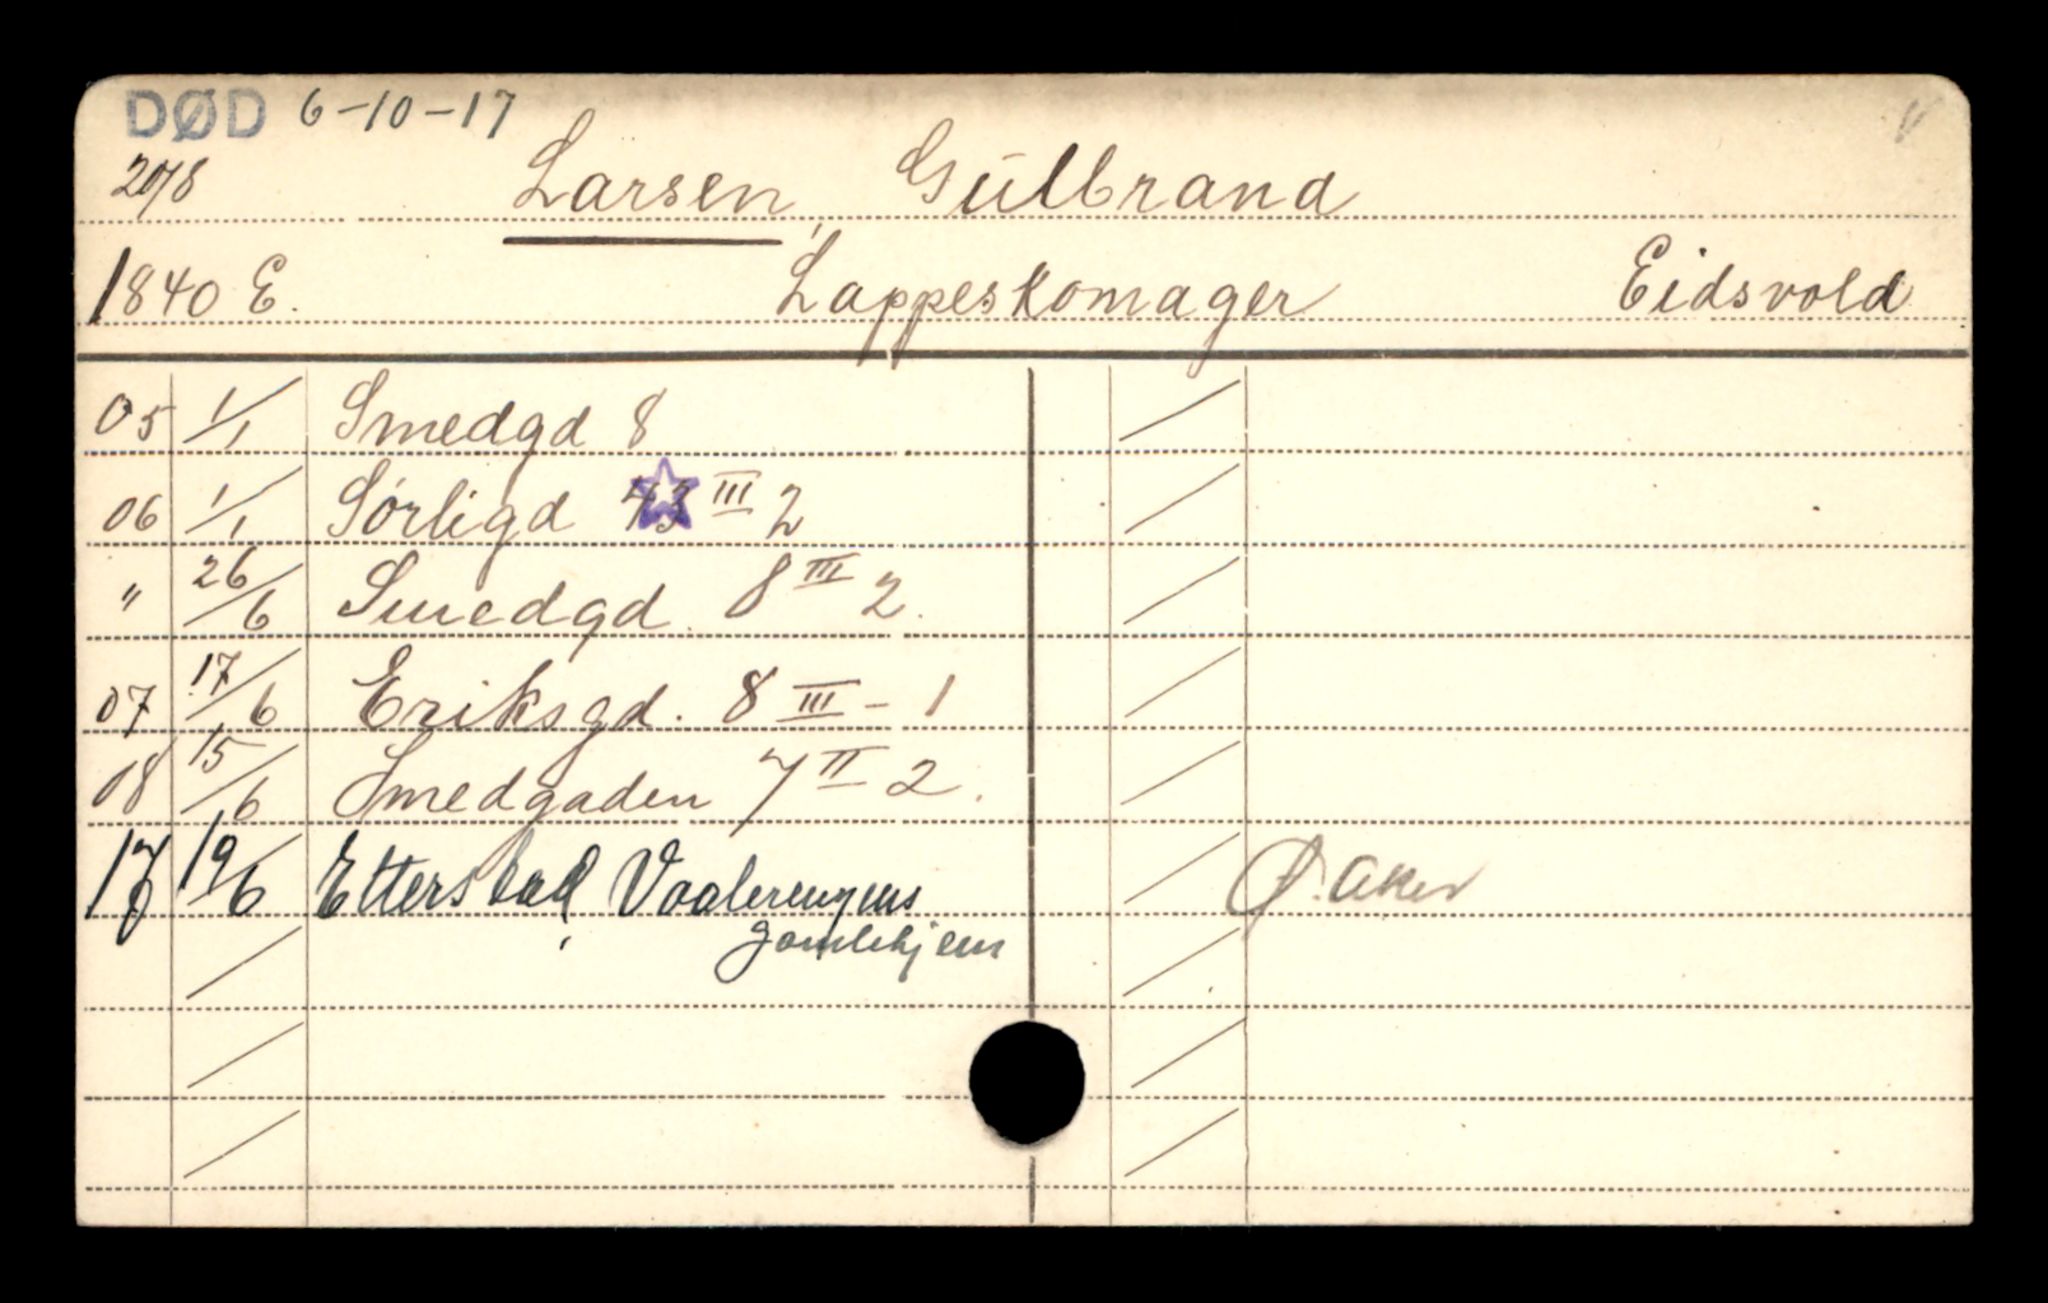 DØD 6-10-17
20/8 Larsen, Gulbrand
1840 E. Lappeskomager Eidsvold
05 1/1 Smedgd 8
06 1/1 Sørligd 43 III 2
" 26/6 Smedgd. 8 III 2.
07 17/6 Eriksgd. 8 III - 1
08 15/6 Smedgaden 7 II 2.
17 19/6 Etterstad, Vaalerengens Ø. Aker
gamlehjem